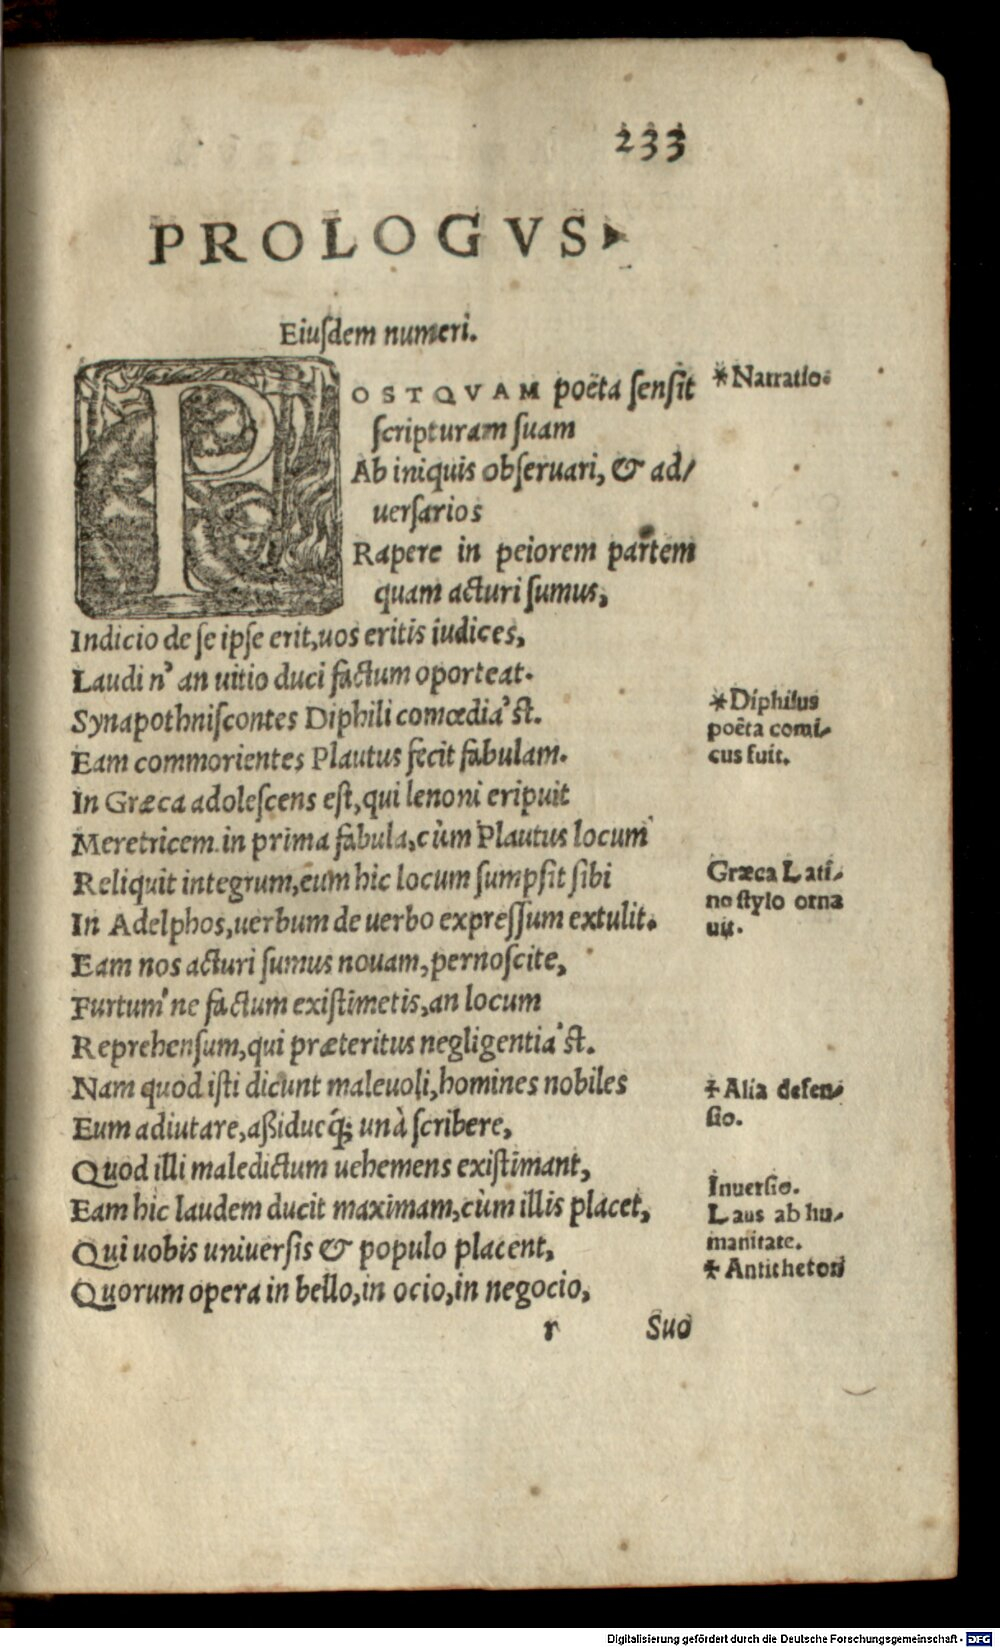 233
PROLOGVS
Eiuſdem numeri.
POSTQVAM poëta ſenſit
ſcripturam ſuam
Ab iniquis obſeruari, & ad/
uerſarios
Rapere in peiorem partem
quam acturi ſumus,
Indicio de ſe ipſe erit,uos eritis iudices,
Laudi n' an uitio duci factum oporteat.
Synapothniſcontes Diphili comœdia'ſt.
Eam commorientes Plautus fecit fabulam.
In Græca adoleſcens eſt,qui lenoni eripuit
Meretricem in prima fabula,cùm Plautus locum
Reliquit integrum,eum hic locum ſumpſit ſibi
In Adelphos,uerbum de uerbo expreſſum extulit.
Eam nos acturi ſumus nouam,pernoſcite,
Furtum'ne factum exiſtimetis,an locum
Reprehenſum,qui præteritus negligentia'ſt.
Nam quod iſti dicunt maleuoli,homines nobiles
Eum adiutare,aßidueq́; unà ſcribere,
Quod illi maledictum uehemens exiſtimant,
Eam hic laudem ducit maximam,cùm illis placet,
Qui uobis uniuerſis & populo placent,
Quorum opera in bello,in ocio,in negocio,
r Suo
*Narratio.
*Diphilus
poëta comi-
cus fuit.
Græca Lati-
no ſtylo orna
uit.
‡ Alia defen-
ſio.
Inuerſio.
Laus ab hu-
manitate.
‡ Antitheton
Digitalisierung gefördert durch die Deutsche Forschungsgemeinschaft - DFG